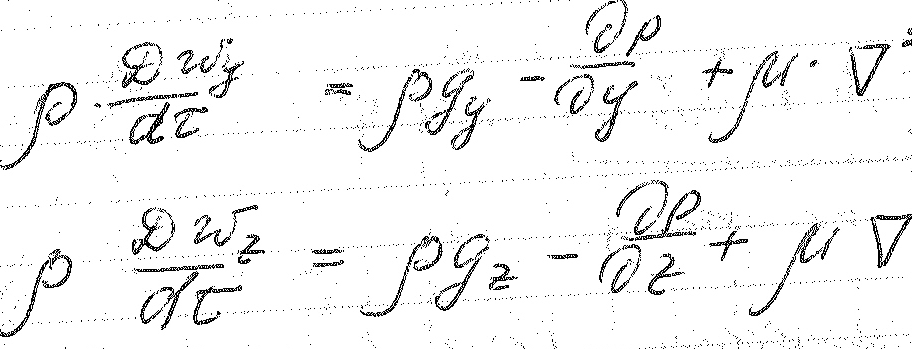 ρ · Dw_y/dτ = ρg_y − ∂p/∂y + μ · ∇
ρ Dw_z/dτ = ρg_z − ∂p/∂z + μ ∇